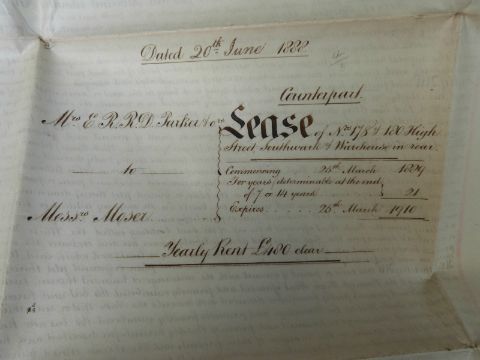 Dated 20th June 1888
Counterpart
Mrs E. R. R. D. Parker & ors
Lease of Nos 178 & 180 High
Street Southwark & Warehouse in rear.
to
Commencing 25th March 1889
For years, determinable at the end
of 7 or 14 years 21
Messrs Moser
Expires 25th March 1910
Yearly Rent £400 clear